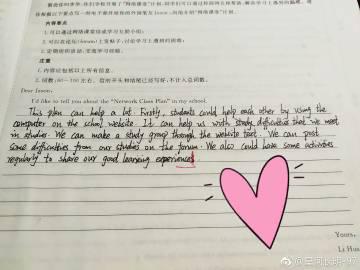 内容要点
1.可以通过网络课堂
2.可以在论坛(forum)上发帖子,讨论学习上遇到的困难;
3.定期组织活动,交流学习经验。
注意
1.内容应包括以上所有信息。
2.词数:80—100左右,信的开头和结尾已经写好,不计入总词数。
Dear Jason,
I'd like to tell you about the "Network Class Plan" in my school.
This plan can help a lot. Firstly, students could help each other by using the
computer on the school website. It can help us with study difficulties that we meet
in studies. We can make a study group through the website test. We can post
some difficulties from our studies on the forum. We also could have some activities
regularly to share our good learning experiences
Yours,
Li Hua